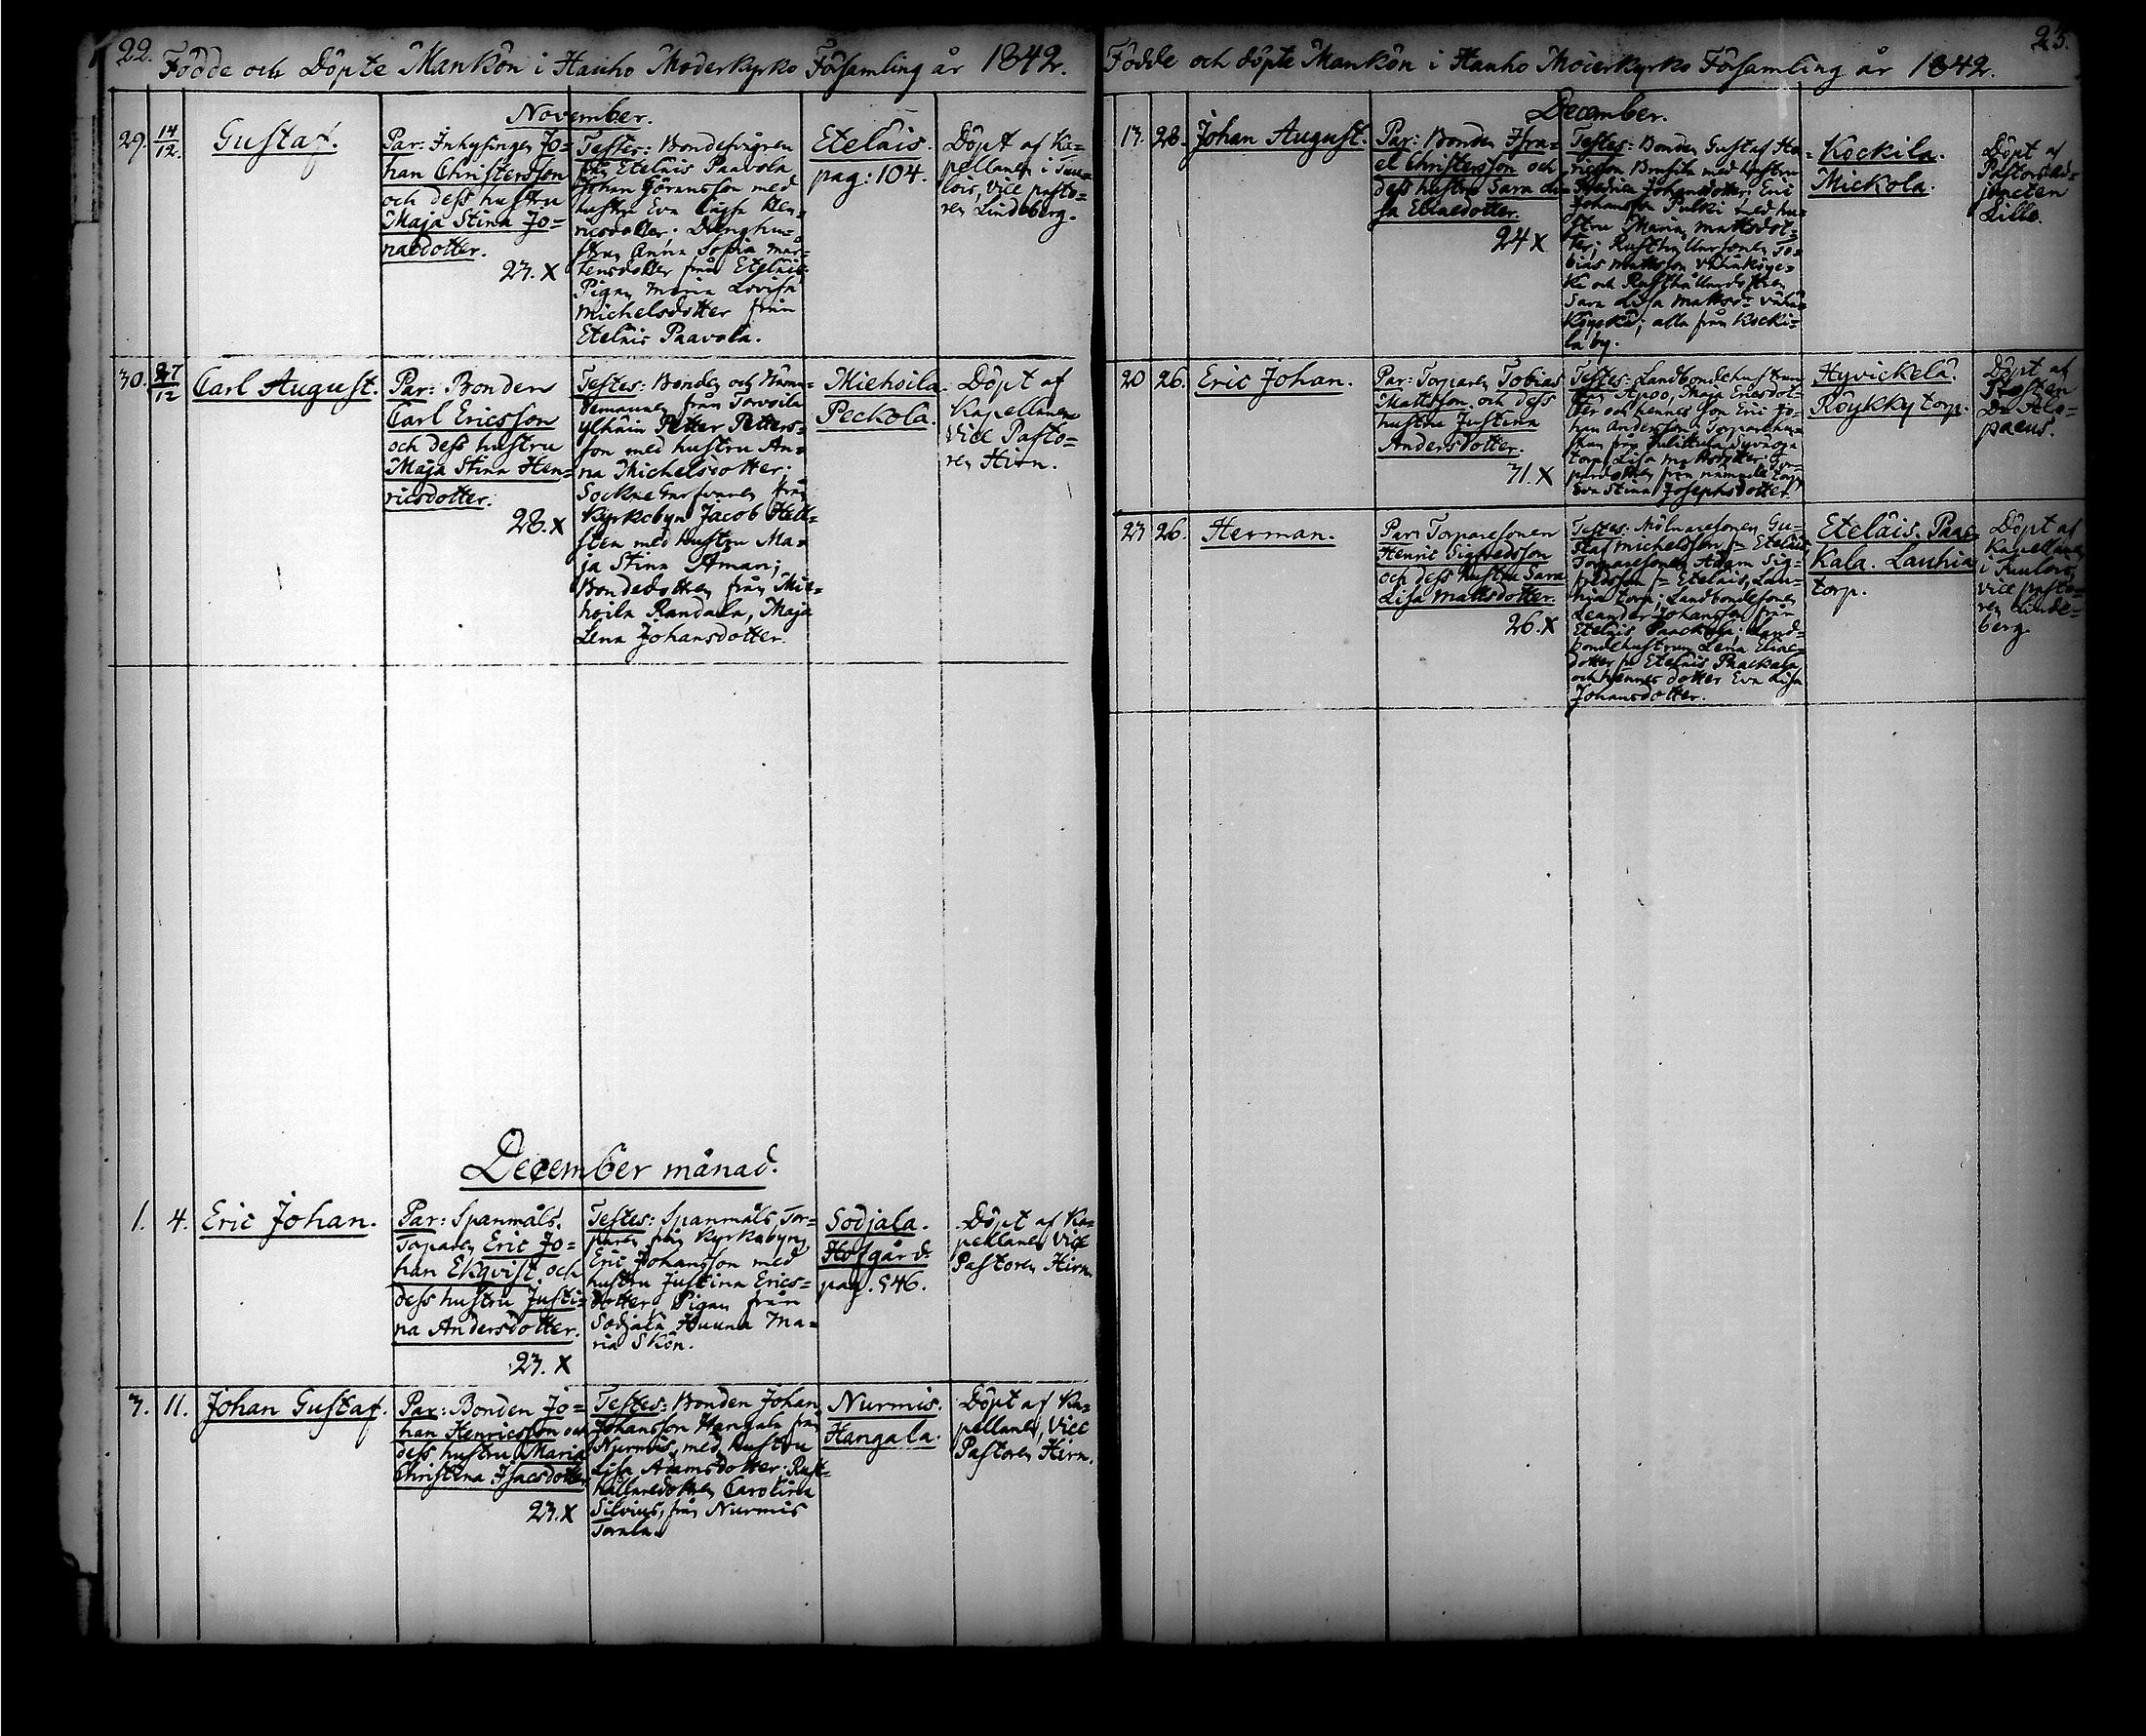 22.
Födde och Döpte Mankön i Hauho Moderkyrko Församling år 1842.
November.
29. 14/12. Gustaf.
Par: Inhysingen Jo=
han Christersson
och dess hustru
Maja Stina Jo=
nasdotter.
23. x
Testes: Bondemågen
från Etelais Paavola
Johan Göransson med
hustru Eva Caisa Hen=
ricsdotter. Drenghu=
strun Anna Sofia Mår=
tensdotter från Etelais.
Pigan Maria Lovisa
Michelsdotter från
Etelais Paavola.
Etelais.
pag: 104.
Döpt af Ka=
pellanen i Tuu=
lois, Vice pasto=
ren Lindeberg.
30. 27/12 Carl August.
Par: Bonden
Carl Ericsson
och dess hustru
Maja Stina Hen=
ricsdotter.
28. x
Testes: Bonden och Näm=
demannen från Torvoila
Ylhäin Petter Petters=
son med hustru An=
na Michelsdotter;
Sockne från
Kyrkobyn Jacob Hell=
sten med hustru Ma=
ja Stina Åman;
Bondedottren från Mie=
hoila Randala, Maja
Lena Johansdotter.
Miehoila
Peckola.
Döpt af
Kapellanen
Vice Pasto=
ren Hirn.
December månad.
1. 4. Eric Johan.
Par: Spanmåls
Torparen Eric Jo=
han Ekqvist och
dess hustru Justi=
na Andersdotter.
23. x
Testes: Spanmåls Tor=
paren från Kyrkobyn
Eric Johansson med
hustru Justina Erics=
dotter, Pigan från
Sodjala Huuna Ma=
ria Skön.
Sodjala.
Hofgård.
pag. 546.
Döpt af Ka=
pellanen Vice
Pastoren Hirn.
3. 11. Johan Gustaf.
Par: Bonden Jo=
han Henricsson och
dess hustru Maria
Christina Isacsdotter
23. x
Testes: Bonden Johan
Johansson Hangala från
Nurmis, med hustru
Lisa Adamsdotter. Rust=
hållaredottren Carolina
Silvius, från Nurmis
Torala.
Nurmis.
Hangala.
Döpt af Ka=
pellanen, Vice
Pastoren Hirn.
23.
Födde och döpte Mankön i Hauho Moderkyrko Församling år 1842.
December.
13. 28. Johan August.
Par: Bonden Isra=
el Christersson och
dess hustru Sara Lo=
sa Eliaedotter.
24 x
Testes: Bonden Gustaf Hen=
ricsson med hustru
Fredrica Johansdotter; Eric
Johansson Pulki med hu=
stru Maria Mattsdot=
ter; Rusthållaresonen To=
bias Mattsson
och Rusthållaredottren
Sara Lisa Mattsdr
alla från Kocki=
la by.
Kockila.
Mickola.
Döpt af
Pastorsad=
juncten
Lilles.
20 26. Eric Johan.
Par: Torparen Tobias
Mattsson och dess
hustru Justina
Andersdotter.
31. x
Testes: Landbondehustrun
från Apoo, Maja Ericsdot=
ter och hennes son Eric Jo=
han Andersson; Torparehu=
strun från
torp, Lisa Mattsdotter; Tor=
paredottren från nämnde torp,
Eva Stina Josephsdotter.
Hyvickelä.
Röykky torp.
Döpt af
Prosten
Dr Alo=
paeus.
23 26. Herman.
Par: Torparesonen
Henric Sigfredsson
och dess hustru Sara
Lisa Mattsdotter.
26. x
Testes: Mölnaresonen Gu=
staf Michelsson fr Etelais
Torparesonen Adam Sig=
fredsson fr Etelais, Lau=
hia torp; Landbondesonen
Leander Johansson från
Etelais Paackala; Land=
bondehustrun Lena Eliae=
dotter fr Etelais Paackala
och hennes dotter Eva Lisa
Johansdotter.
Etelais. Paac
Kala. Lauhia
torp.
Döpt af
Kapellanen
i Tuulois,
vice pasto=
ren Linde=
berg.